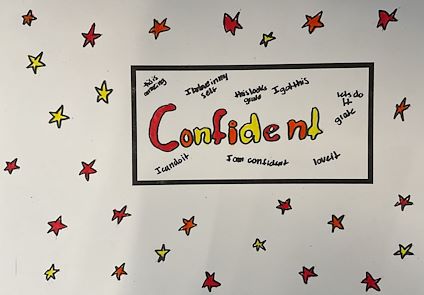 this is
amazing
I believe in my
self
this looks
grate
I got this
lets do
it
grate
Confident
I can do it
I am confident
love it